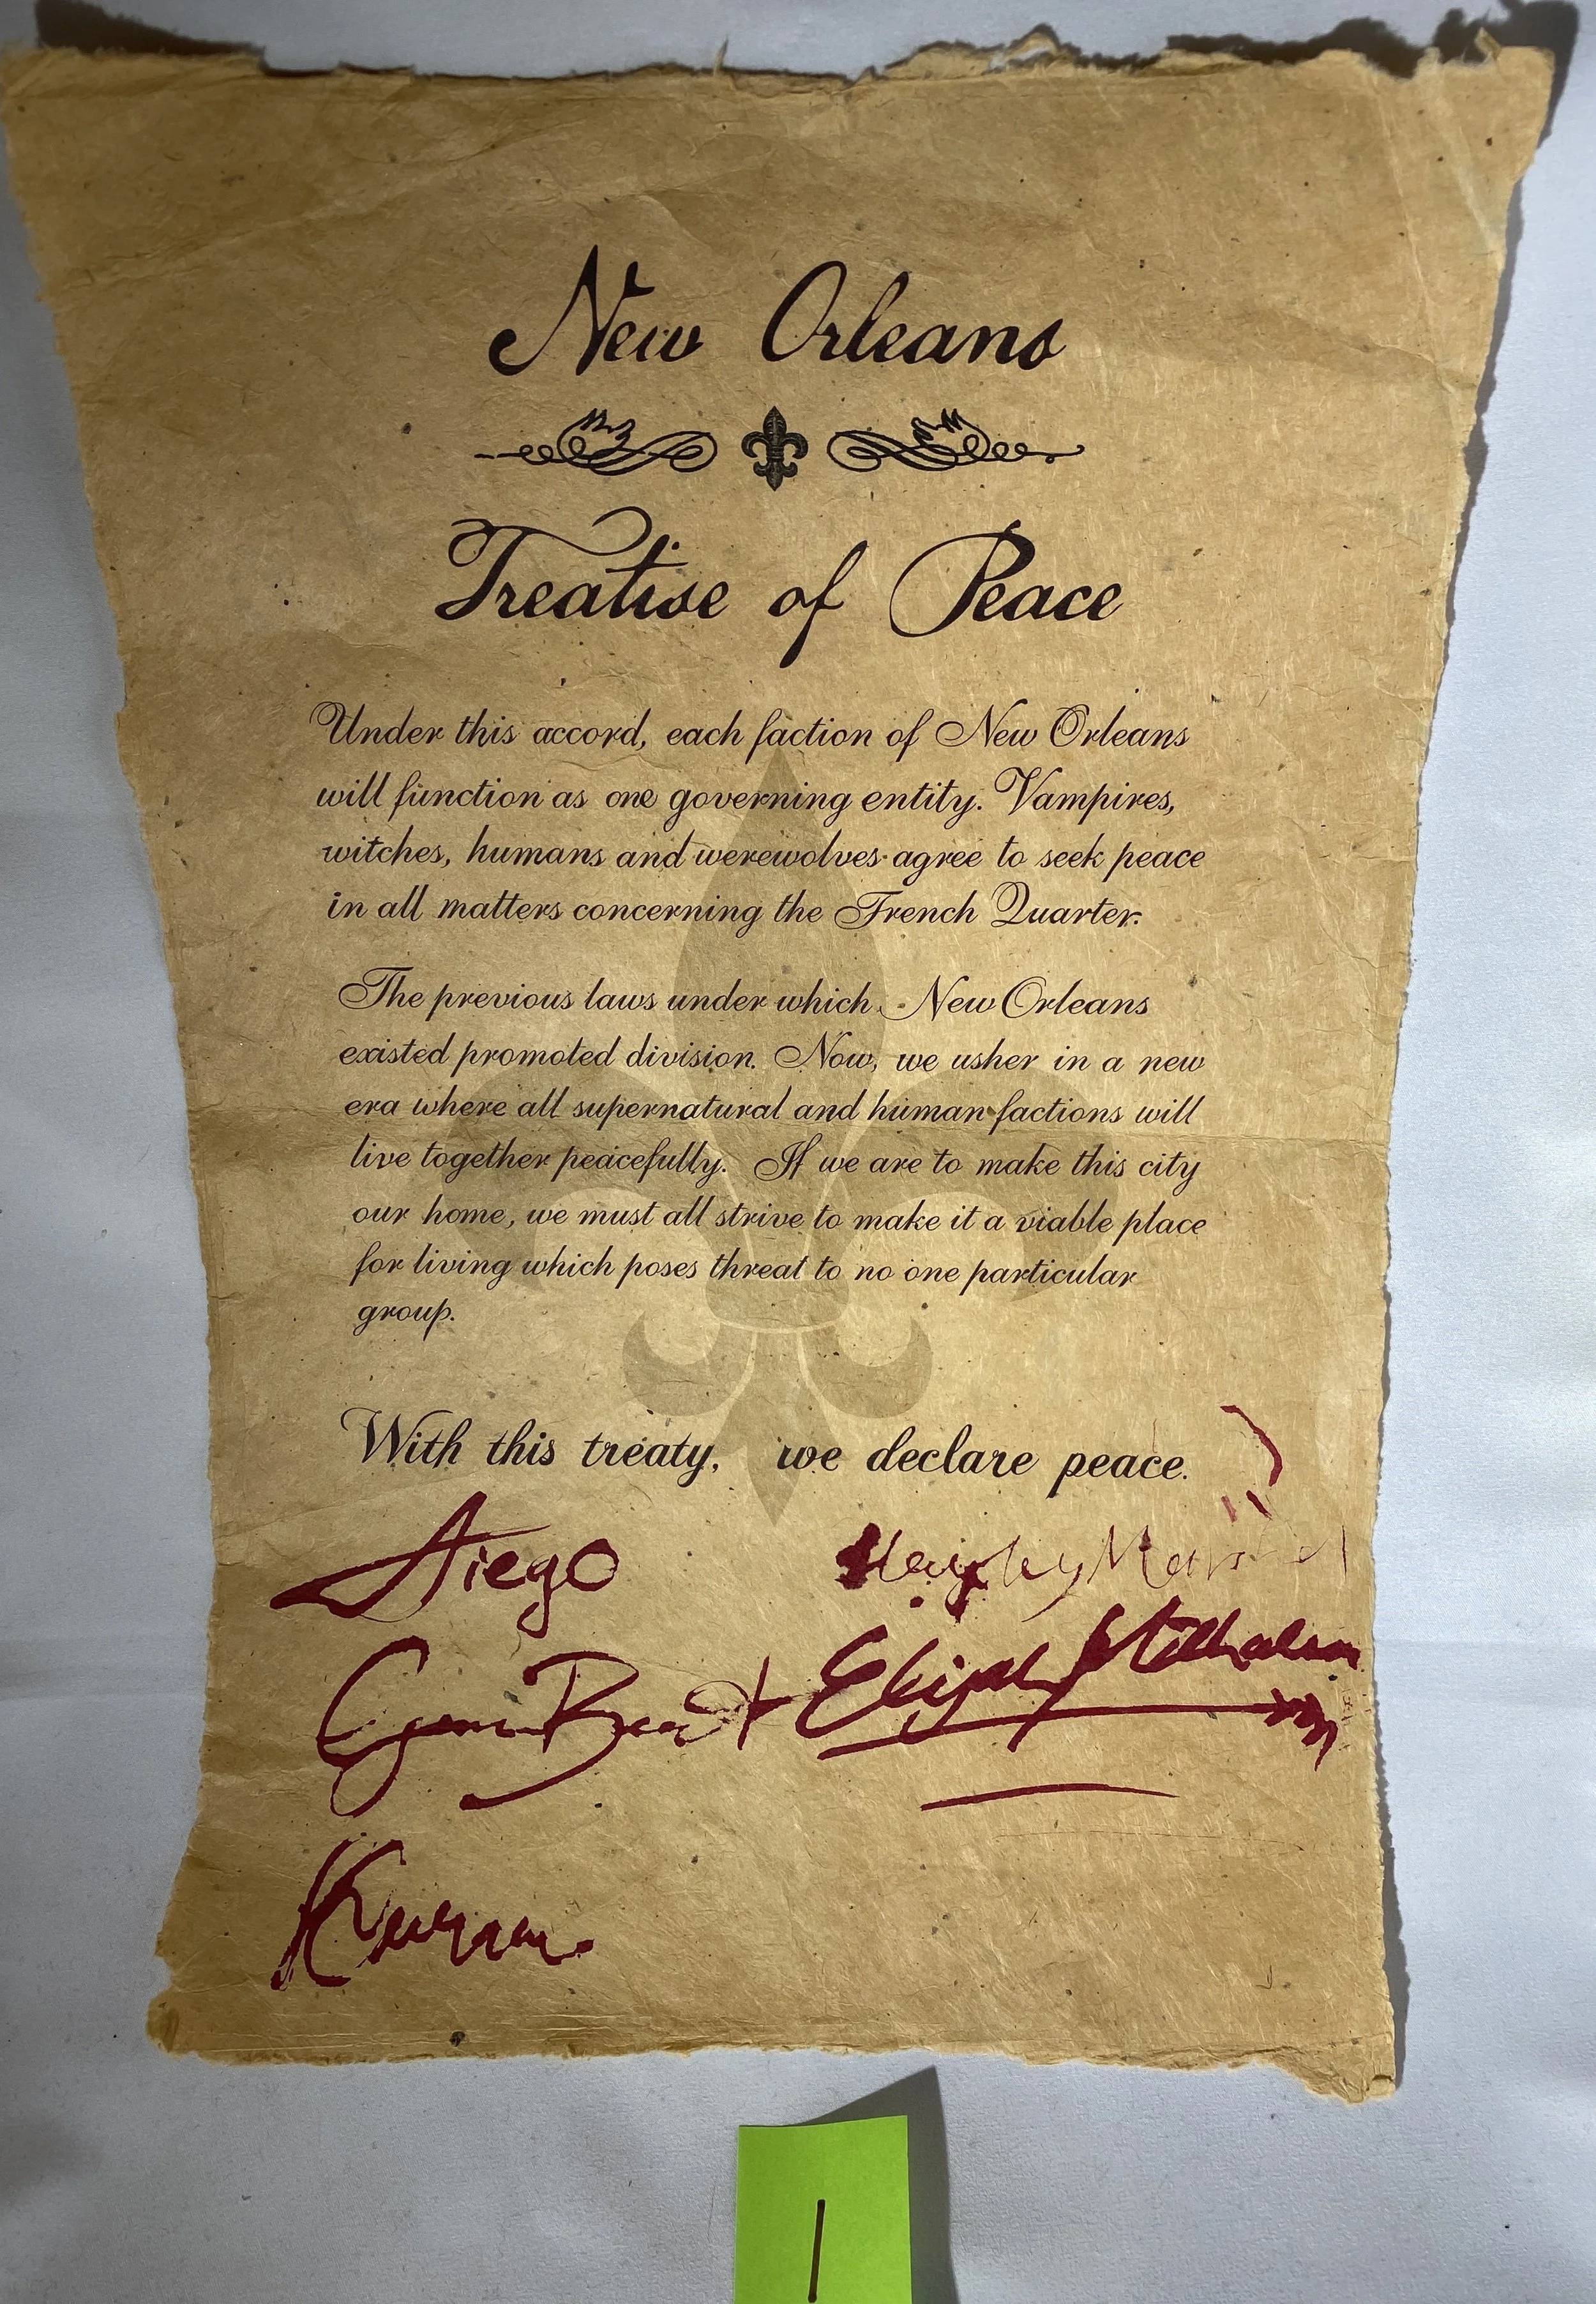 New Orleans
Treatise of Peace
Under this accord, each faction of New Orleans
will function as one governing entity. Vampires,
witches, humans and werewolves agree to seek peace
in all matters concerning the French Quarter.
The previous laws under which New Orleans
existed promoted division. Now, we usher in a new
era where all supernatural and human factions will
live together peacefully. If we are to make this city
our home, we must all strive to make it a viable place
for living which poses threat to no one particular
group.
With this treaty, we declare peace.
Diego
Hayley Marshal
Elijah Mikaelson
1